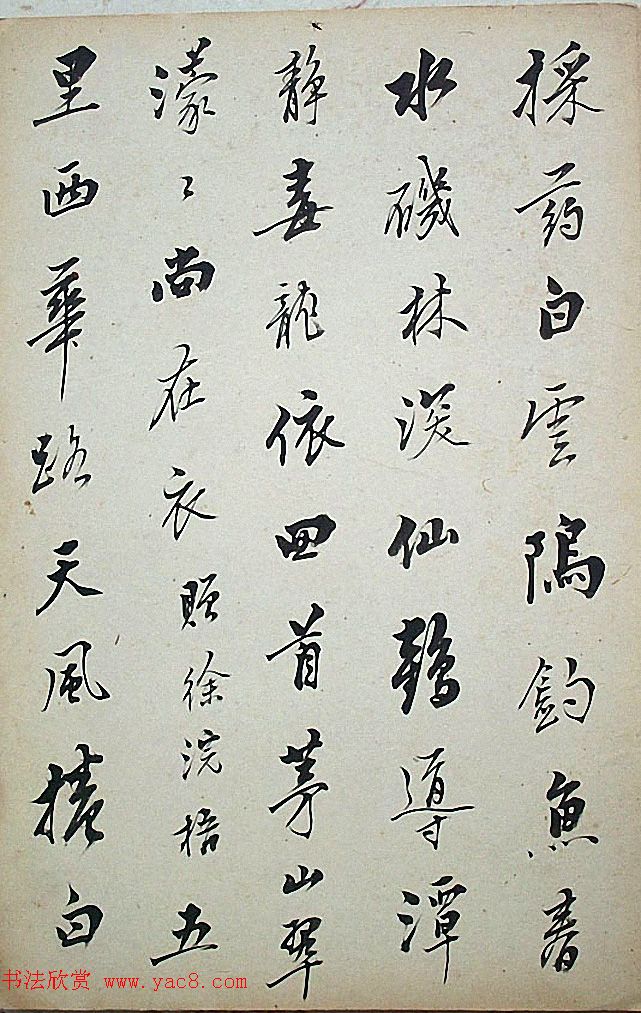 採药白雲隖釣魚春
水磯林深仙鶴導潭
静毒龍依回首茅山翠
濛〻尚在衣贈徐浣梧五
里西華路天風捲白
书法欣赏 www.yac8.com